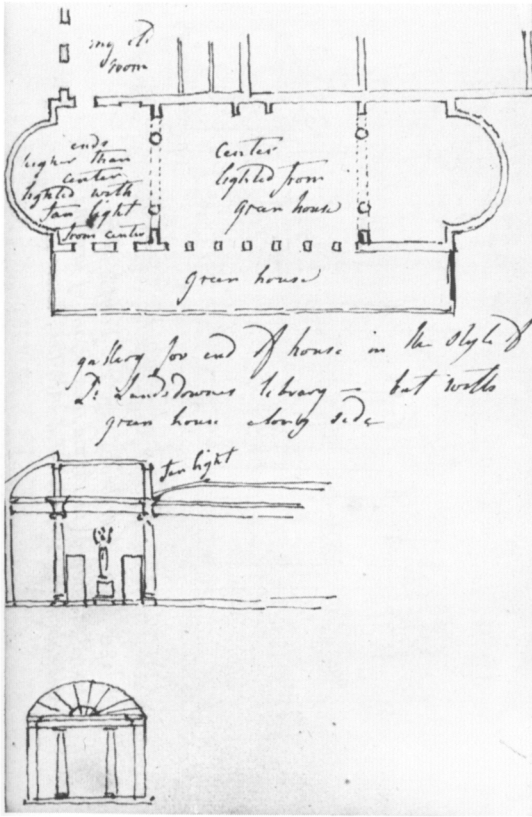 room
ends
higher than
center
lighted with
fan light
from center
Center
lighted from
green house
green house
gallery for end of house in the style of
Ld. Lansdownes library – but with
green house along side
fan light